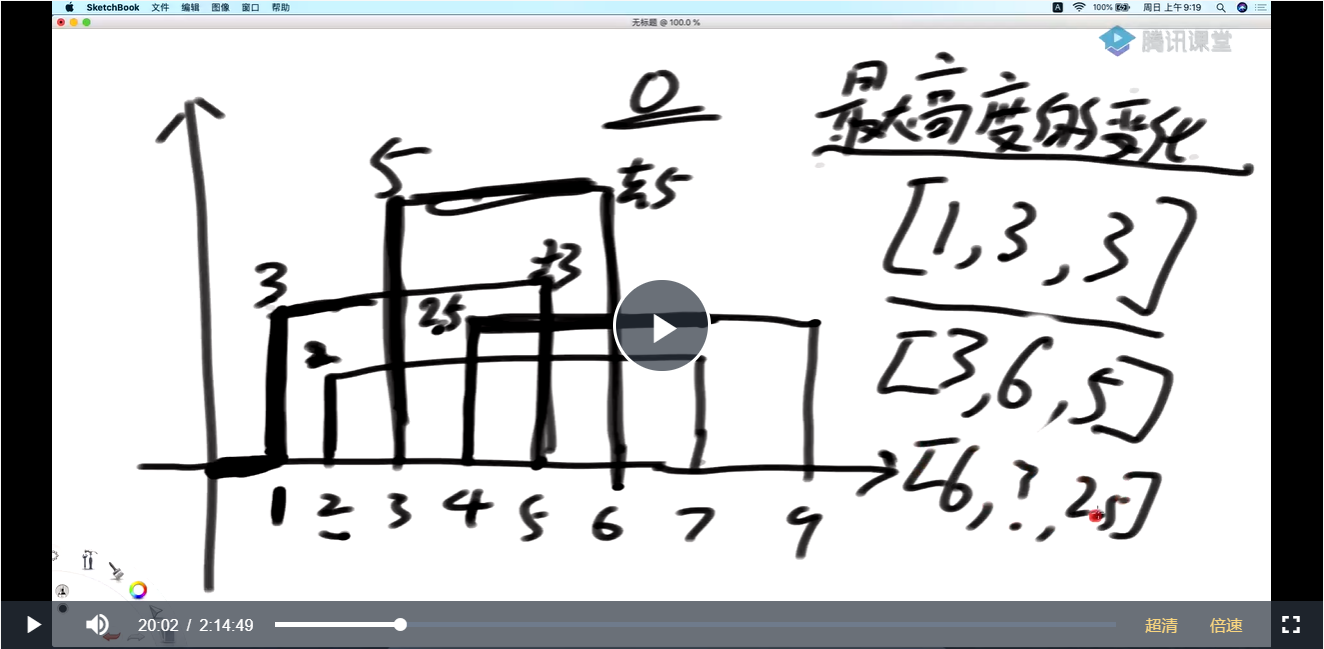 SketchBook 文件 编辑 图像 窗口 帮助
A 100% 周日 上午9:19
无标题 @ 100.0 %
腾讯课堂
0
最大高度的变化
5
5
3
3
2.5
2
[1,3,3]
[3,6,5]
[6,?,2.5]
1 2 3 4 5 6 7 9
20:02 / 2:14:49
超清 倍速